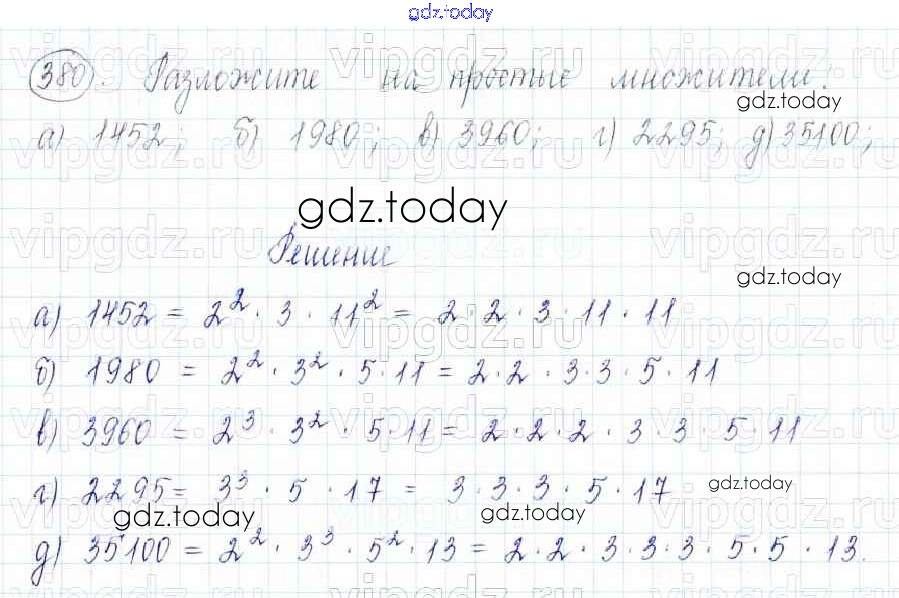 gdz.today
380. Разложите на простые множители:
gdz.today
а) 1452; б) 1980; в) 3960; г) 2295; д) 35100;
gdz.today
Решение
gdz.today
а) 1452 = 2² · 3 · 11² = 2 · 2 · 3 · 11 · 11
б) 1980 = 2² · 3² · 5 · 11 = 2 · 2 · 3 · 3 · 5 · 11
в) 3960 = 2³ · 3² · 5 · 11 = 2 · 2 · 2 · 3 · 3 · 5 · 11
г) 2295 = 3³ · 5 · 17 = 3 · 3 · 3 · 5 · 17
gdz.today
gdz.today
gdz.today
д) 35100 = 2² · 3³ · 5² · 13 = 2 · 2 · 3 · 3 · 3 · 5 · 5 · 13.